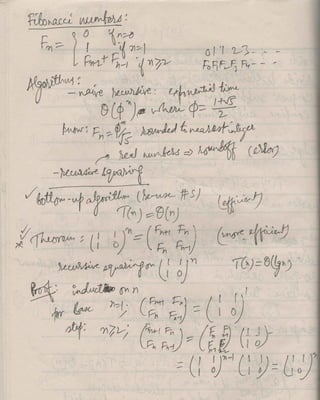 Fibonacci numbers:
Fn = { 0 if n=0
1 if n=1
Fn-2 + Fn-1 if n≥2
0 1 1 2 3 - - -
F0 F1 F2 F3 F4 - - -
Algorithms:
- naive recursive: exponential time
Θ(ϕ^n) where ϕ = (1+√5)/2
know: Fn = ϕ^n/√5 rounded to nearest integer
real numbers ⇒ roundoff (error)
- recursive squaring
✓ bottom-up algorithm (Re-use #s) (efficient)
T(n) = Θ(n)
Theorem: (1 1 / 1 0)^n = (Fn+1 Fn / Fn Fn-1) (more efficient)
recursive squaring on (1 1 / 1 0)^n T(n) = Θ(lg n)
Proof: induction on n
for base n=1; (Fn+1 Fn / Fn Fn-1) = (1 1 / 1 0)^1
step: n≥2; (Fn+1 Fn / Fn Fn-1) = (Fn Fn-1 / Fn-1 Fn-2) (1 1 / 1 0)
= (1 1 / 1 0)^n-1 (1 1 / 1 0) = (1 1 / 1 0)^n